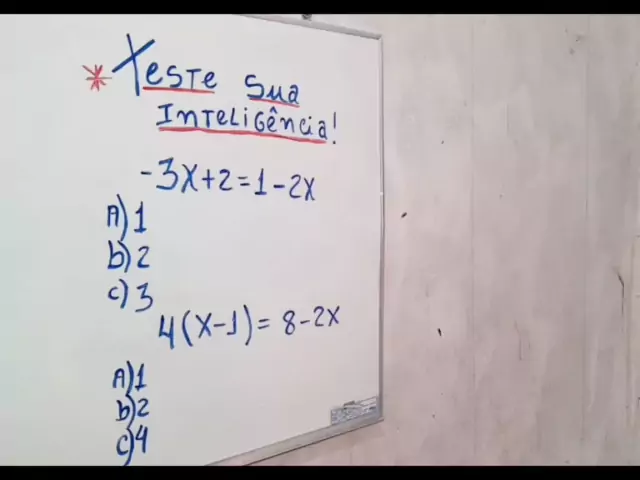 * Teste Sua
Inteligência!
-3x+2=1-2x
A) 1
b) 2
c) 3
4(x-1)=8-2x
A) 1
b) 2
c) 4